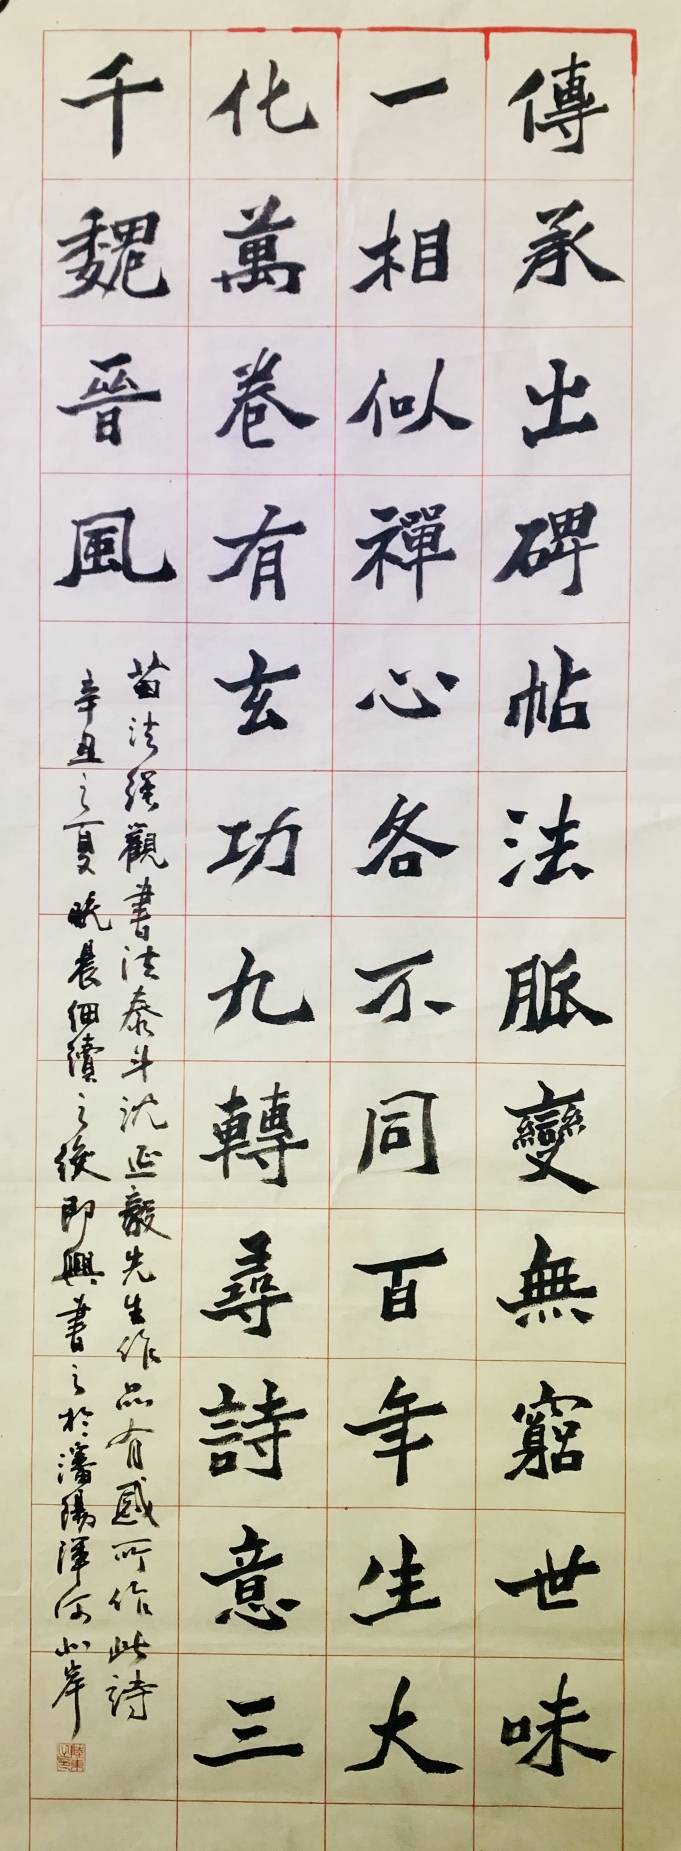 傳承出碑帖法脈變無窮世味
一相似禪心各不同百年生大
化萬卷有玄功九轉尋詩意三
千魏晉風
苗法強觀書法泰斗沈延毅先生作品有感所作此詩
辛丑之夏曉晨細續之後即興書之於瀋陽渾河北岸